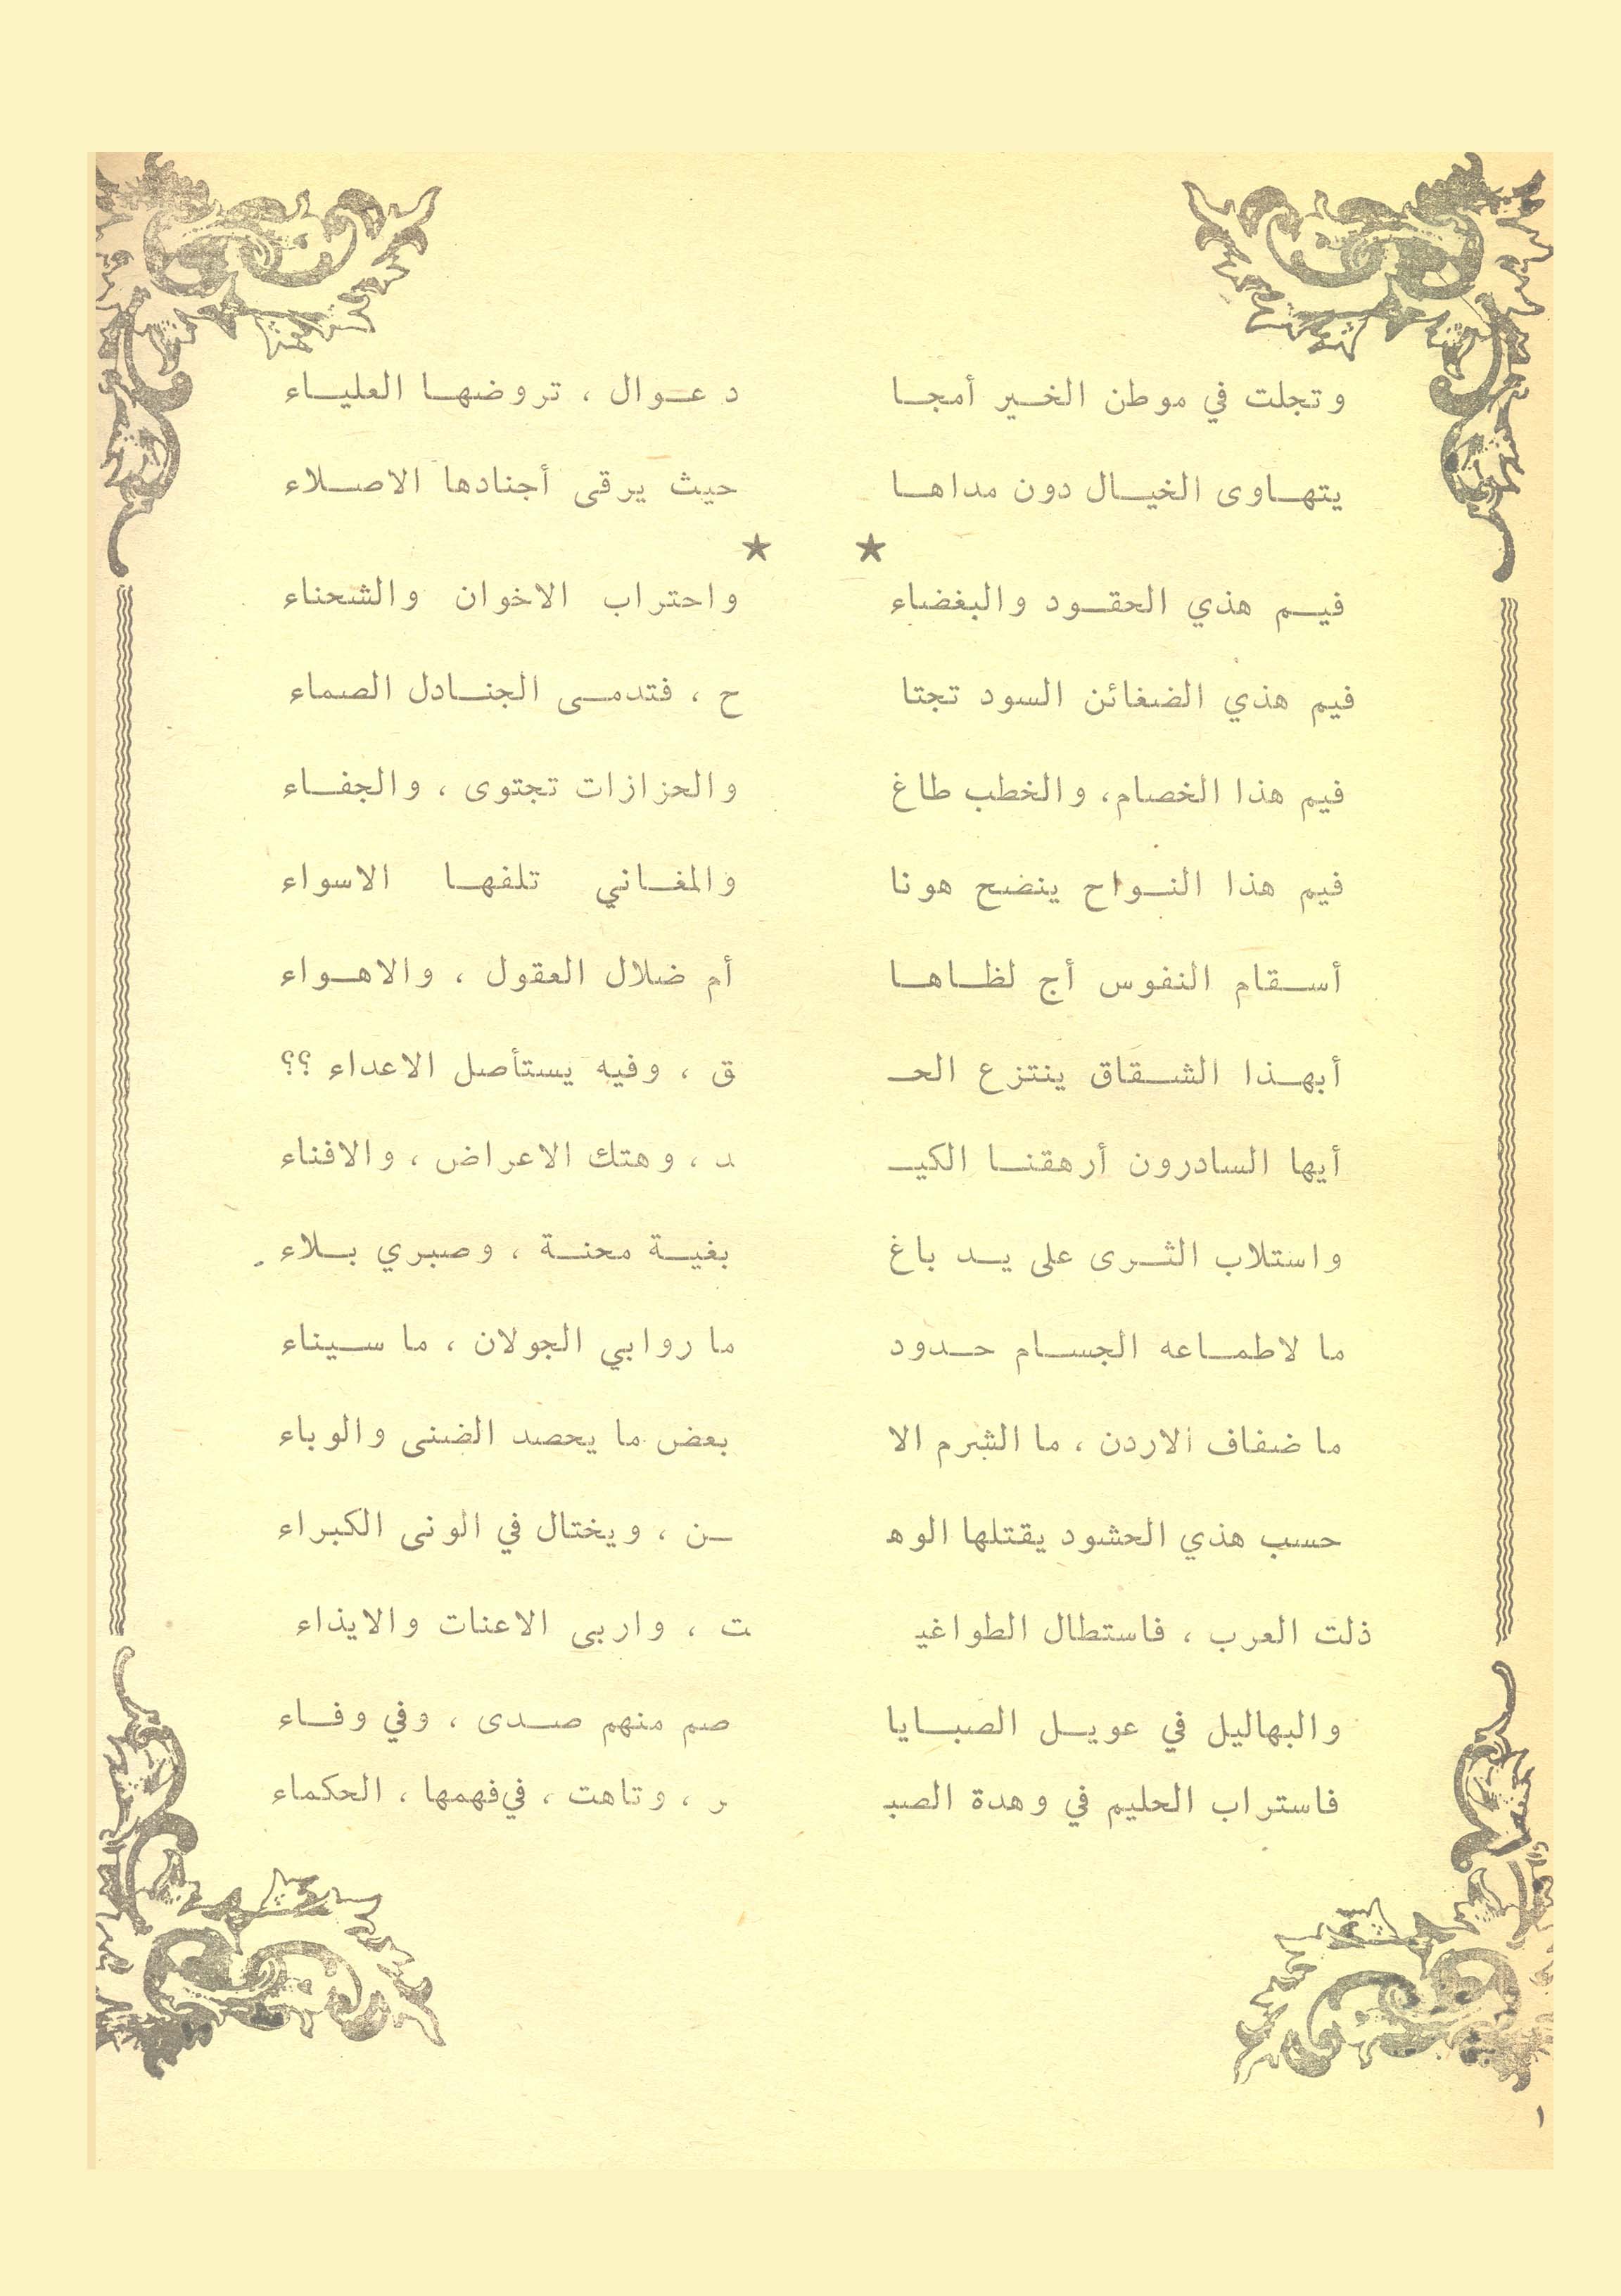 وتجلت في موطن الخير أمجا د عوال ، تروضها العلياء
يتهاوى الخيال دون مداها حيث يرقى أجنادها الاصلاء
★ ★
فيم هذي الحقود والبغضاء واحتراب الاخوان والشحناء
فيم هذي الضغائن السود تجتا ح ، فتدمى الجنادل الصماء
فيم هذا الخصام، والخطب طاغ والحزازات تجتوى ، والجفاء
فيم هذا النواح ينضح هونا والمغاني تلفها الاسواء
أسقام النفوس أج لظاها أم ضلال العقول ، والاهواء
أبهذا الشقاق ينتزع الحـ ق ، وفيه يستأصل الاعداء ؟؟
أيها السادرون أرهقنا الكيـ ـد ، وهتك الاعراض ، والافناء
واستلاب الثرى على يد باغ بغية محنة ، وصبري بلاء
ما لاطماعه الجسام حدود ما روابي الجولان ، ما سيناء
ما ضفاف الاردن ، ما الشرم الا بعض ما يحصد الضنى والوباء
حسب هذي الحشود يقتلها الوهـ ـن ، ويختال في الونى الكبراء
ذلت العرب ، فاستطال الطواغيـ ـت ، واربى الاعنات والايذاء
والبهاليل في عويل الصبايا صم منهم صدى ، وفي وفاء
فاستراب الحليم في وهدة الصبـ ـر ، وتاهت ، في فهمها ، الحكماء
١